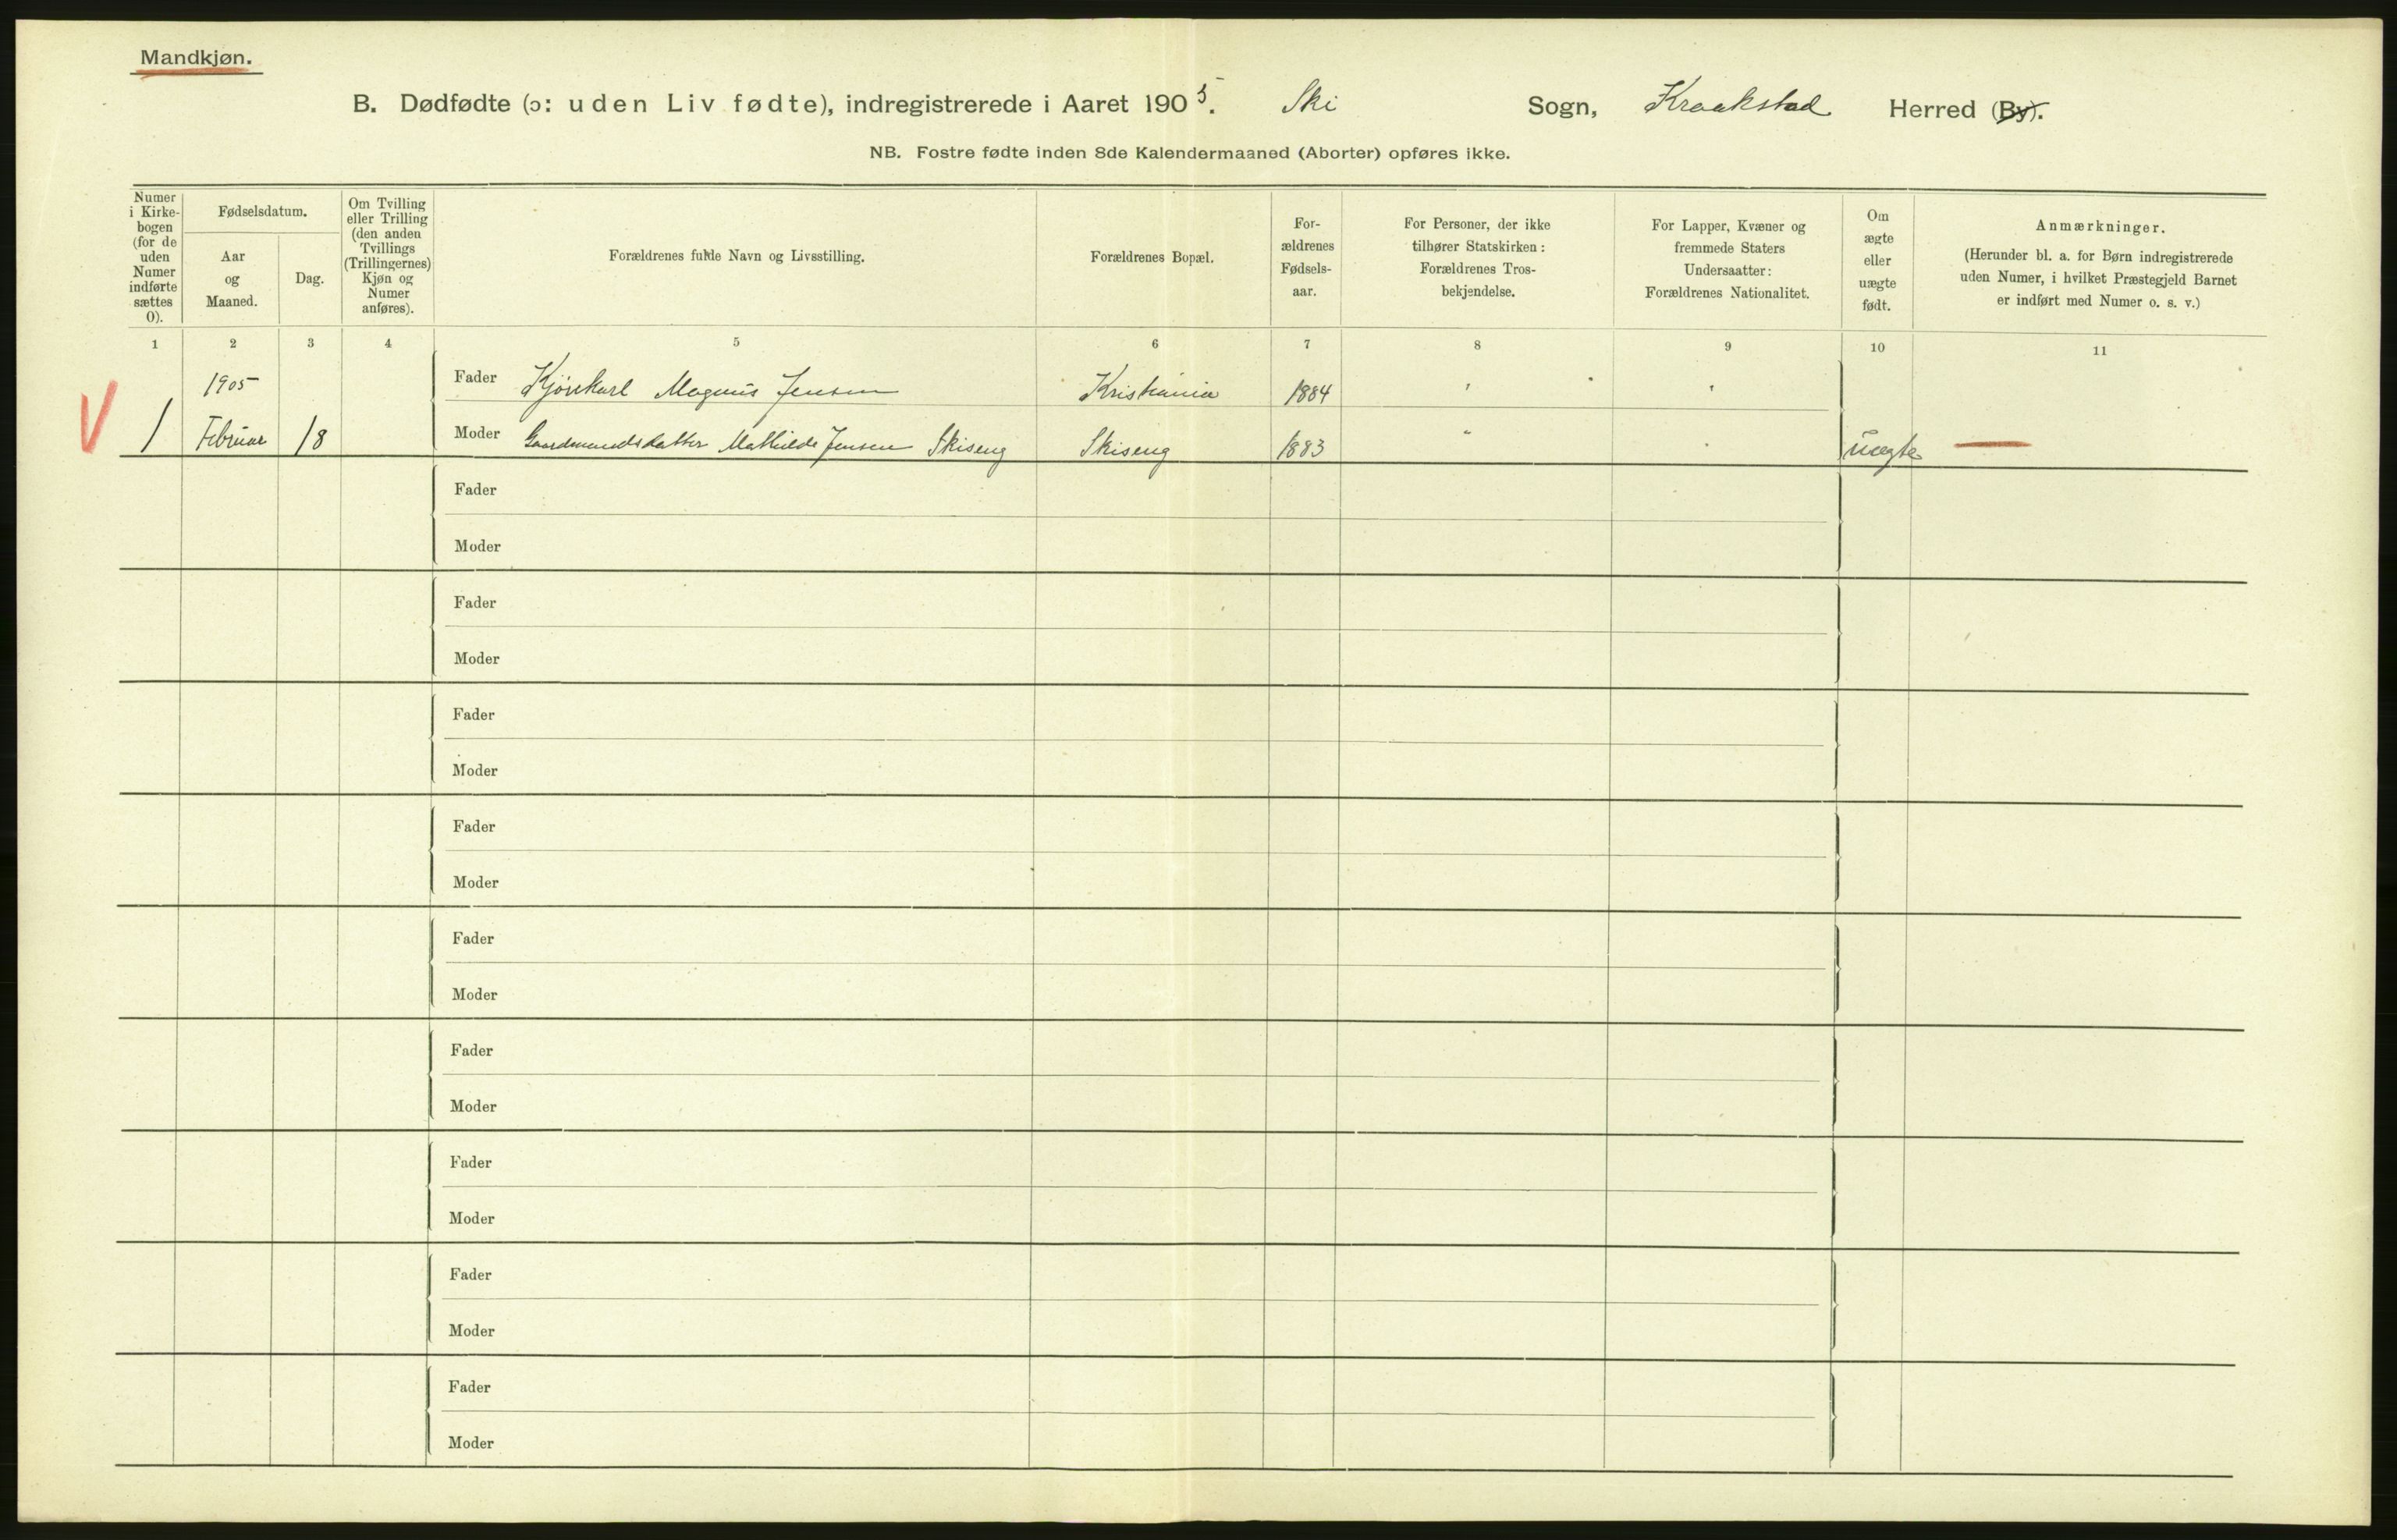 Mandkjøn.
B. Dødfødte (ɔ: uden Liv fødte), indregistrerede i Aaret 1905. Ski Sogn, Kraakstad Herred (By).
NB. Fostre fødte inden 8de Kalendermaaned (Aborter) opføres ikke.
Numer
i Kirke-
bogen
(for de
uden
Numer
indførte
sættes
0).
Fødselsdatum.
Aar
og
Maaned.
Dag.
Om Tvilling
eller Trilling
(den anden
Tvillings
(Trillingernes)
Kjøn og
Numer
anføres).
Forældrenes fulde Navn og Livsstilling.
Forældrenes Bopæl.
For-
ældrenes
Fødsels-
aar.
For Personer, der ikke
tilhører Statskirken:
Forældrenes Tros-
bekjendelse.
For Lapper, Kvæner og
fremmede Staters
Undersaatter:
Forældrenes Nationalitet.
Om
ægte
eller
uægte
født.
Anmærkninger.
(Herunder bl. a. for Børn indregistrerede
uden Numer, i hvilket Præstegjeld Barnet
er indført med Numer o. s. v.)
1 2 3 4 5 6 7 8 9 10 11
1905 Fader Kjørekarl Magnus Jensen Kristiania 1884 " "
V 1 Februar 18 Moder Gaardmandsdatter Mathilde Jensen Skiseng Skiseng 1883 " " uægte —
Fader
Moder
Fader
Moder
Fader
Moder
Fader
Moder
Fader
Moder
Fader
Moder
Fader
Moder
Fader
Moder
Fader
Moder